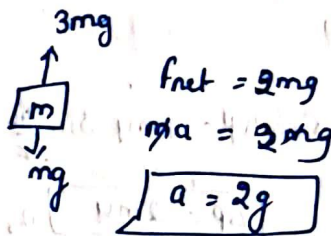 3mg
m
mg
Fnet = 2mg
ma = 2mg
a = 2g